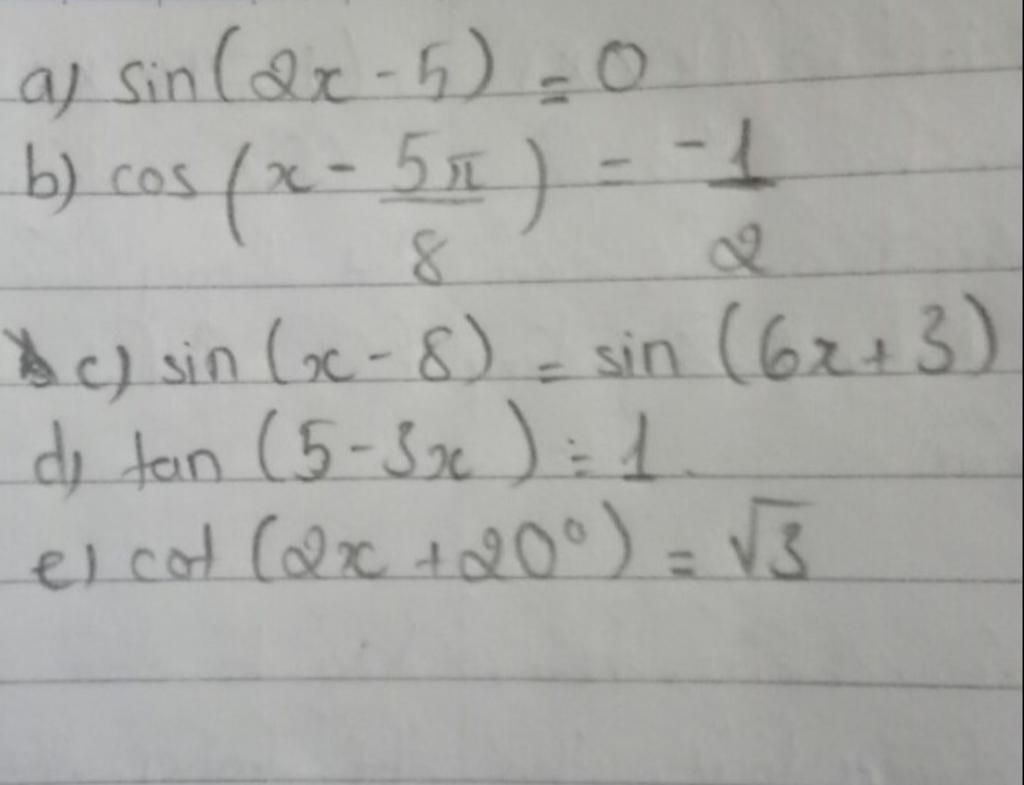 a) sin(2x - 5) = 0
b) cos(x - 5π/8) = -1/2
c) sin(x - 8) = sin(6x + 3)
d) tan(5 - 3x) = 1
e) cot(2x + 20°) = √3